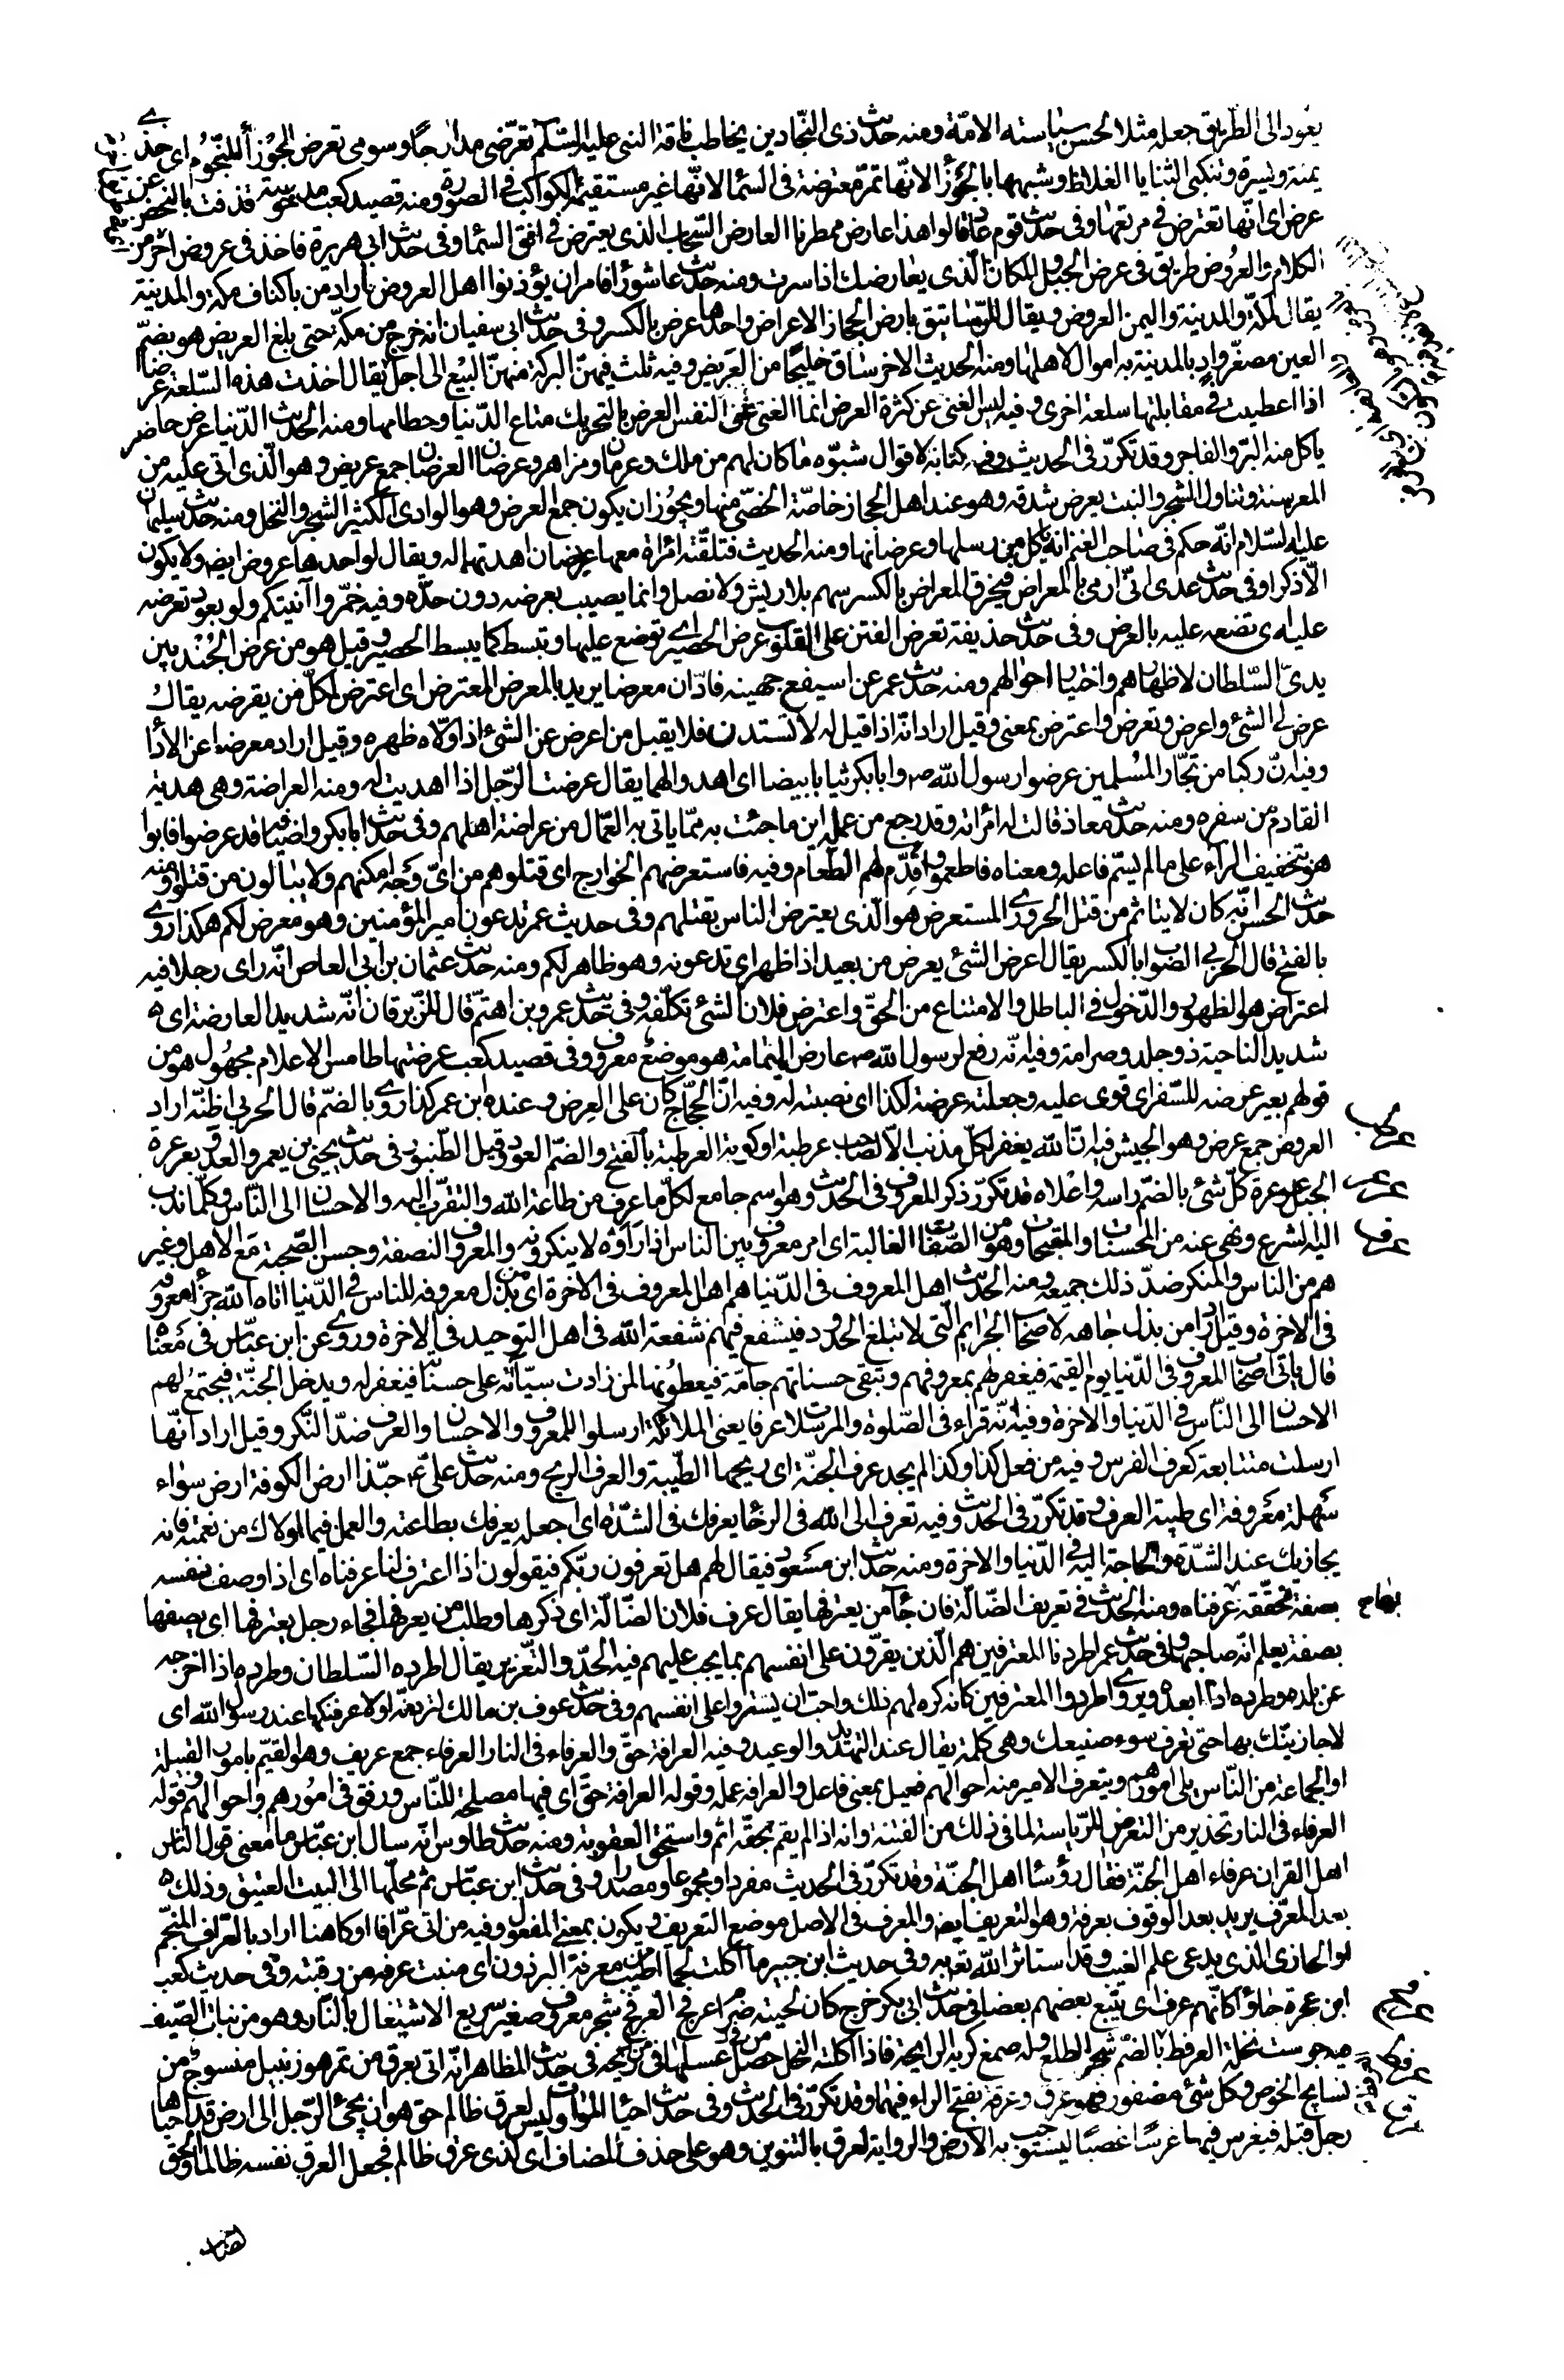 يعود الى الطريق جعله مثلا لحسن سياسته الامّة ومنه حديث ذى النجادين يخاطب ناقة النبى عليه السّلم تعرّضى مدارجًا وسومى تعرض الجوزا للنجوم اى خذى
يمنة ويسرة وتنكبى الثنايا الغلاظ وشبهها بالجوزا لانها تمرّ معترضة فى السما لانها غير مستقيمة الكواكب فى الصورة ومنه قصيد كعب مدخوسة قذفت بالنحض عن
عرض اى انها تعترض فى مرتعها وفى حديث قوم عاد قالوا هذا عارض ممطرنا العارض السّحاب الذى يعترض فى افق السما وفى حديث ابى هريرة فاخذ فى عروض اخر من
الكلام والعروض طريق فى عرض الجبل والمكان الذى يعارضك اذا سرت ومنه حديث عاشورا فامر ان يؤذنوا اهل العروض اراد من باكناف مكة والمدينة
يقال لمكّة والمدينة واليمن العروض ويقال للرساتيق بارض الحجاز الاعراض واحدها عرض بالكسر وفى حديث ابى سفيان انه خرج من مكّة حتى بلغ العريض هو بضمّ
العين مصغّر واد بالمدينة به اموال لاهلها ومنه الحديث الاخر ساق خليجًا من العريض وفيه ثلث فيهنّ البركة منهنّ البيع الى اجل يقال اخذت هذه السّلعة عرضا
اذا اعطيت فى مقابلتها سلعة اخرى وفيه ليس الغنى عن كثرة العرض انما الغنى غنى النفس العرض بالتحريك متاع الدّنيا وحطامها ومنه الحديث الدّنيا عرض حاضر
ياكل منه البرّ والفاجر وقد تكرّر فى الحديث وفى كتابه لاقوال شبوّه ما كان لهم من ملك وعرمان ومزاهر وعرضان العرضان جمع عريض وهو الّذى اتى عليه من
المعز سنة وتناول الشجر والنبت بعرض شدقه وهو عند اهل الحجاز خاصّة الخصّى منها ويجوز ان يكون جمع العرض وهو الوادى الكثير الشجر والنخل ومنه حديث سليمان
عليه السّلام انّه حكم فى صاحب الغنم انه ياكل من رسلها وعرضانها ومنه الحديث فتلقّته امراة معها عرضان اهدتهما له ويقال لواحدها عروض ايضا ولا يكون
الّا ذكرا وفى حديث عدى انّى ارمى بالمعراض فيخرق المعراض بالكسر سهم بلا ريش ولا نصل وانما يصيب بعرضه دون حدّه وفيه خمّروا آنيتكم ولو بعود تعرضه
عليه اى تضعه عليه بالعرض وفى حديث حذيفة تعرض الفتن على القلوب عرض الحصير اى توضع عليها وتبسط كما يبسط الحصير وقيل هو من عرض الجند بين
يدى السّلطان لاظهارهم واختبار احوالهم ومنه حديث عمر عن اسيفع جهينه فادّان معرضا يريد بالمعرض المعترض اى اعترض لكلّ من يقرضه يقال
عرض لى الشئ واعرض وتعرض واعترض بمعنى وقيل اراد انّه اذا قيل له لا تستدن فلا يقبل من اعرض عن الشئ اذا ولّاه ظهره وقيل اراد معرضا عن الأدا
وفيه انّ ركبا من تجّار المسلمين عرضوا رسول الله ص وابا بكر ثيابا بيضا اى اهدوا لهما يقال عرضت الرّجل اذا اهديت له ومنه العراضة وهى هدية
القادم من سفره ومنه حديث معاذ قالت له امراته وقد رجع من عمله اين ما جئت به ممّا ياتى به العمّال من عراضة اهلهم وفى حديث ابا بكر واضيافه قد عرضوا فابوا
هو بتخفيف الراء على ما لم يسمّ فاعله ومعناه فاطعموا وقدّم لهم الطعام وفيه فاستعرضهم الخوارج اى قتلوهم من اىّ وجه امكنهم ولا يبالون من قتلوا ومنه
حديث الحسن انّه كان لا يتاثم من قتل الحرورى المستعرض هو الّذى يعترض الناس بقتلهم وفى حديث عمر تدعون امير المؤمنين وهو معرض لكم هكذا روى
بالفتح قال الحربى الصّواب بالكسر يقال اعرض الشئ يعرض من بعيد اذا ظهر اى تدعونه وهو ظاهر لكم ومنه حديث عثمان بن ابى العاص انّه راى رجلا فيه
اعتراض هو الظهور والدّخول فى الباطل والامتناع من الحقّ واعترض فلان الشئ تكلّفه وفى حديث عمرو بن اهتم قال للزّبرقان انّه شديد العارضة اى
شديد الناحية ذو جلد وصرامة وفيه انّه رفع لرسول الله ص عارض اليمامة هو موضع معروف وفى قصيد كعب عرضتها طامس الاعلام مجهول هو من
قولهم بعير عرضه للسّفر اى قوى عليه وجعلته عرضة لكذا اى نصبته له وفيه انّ الحجّاج كان على العرض وعنده ابن عمر كذا روى بالضّم قال الحربى اظنّه اراد
العروض جمع عرض وهو الجيش فيه انّ الله يغفر لكلّ مذنب الّا لصاحب عرطبة او كوبة العرطبة بالفتح والضّم العود وقيل الطّنبور فى حديث يحيى بن يعمر والعدوّ بعرعرة
الجبل وعرعرة كلّ شئ بالضّم راسه واعلاه قد تكرّر ذكر المعروف فى الحديث وهو اسم جامع لكلّ ما عرف من طاعة الله والتقرّب اليه والاحسان الى النّاس وكلّما ندب
اليه الشرع ونهى عنه من المحسنات والمقبحات وهو من الصّفات الغالبة اى امر معروف بين الناس اذا رأوه لا ينكرونه والمعروف النصفة وحسن الصّحبة مع الاهل وغير
هم من الناس والمنكر ضدّ ذلك جميعه ومنه الحديث اهل المعروف فى الدّنيا هم اهل المعروف فى الاخرة اى من بذل معروفه للناس فى الدّنيا اتاه الله جزاء معروفه
فى الاخرة وقيل اراد من بذل جاهه لاصحاب الجرايم الّتى لا تبلغ الحدود فيشفع فيهم شفعه الله فى اهل التوحيد فى الاخرة وروى عن ابن عبّاس فى معناه
قال ياتى اصحاب المعروف فى الدّنيا يوم القيمة فيغفر لهم بمعروفهم وتبقى حسناتهم جامّة فيعطونها لمن زادت سيّآته على حسناته فيغفر له ويدخل الجنّة فيجتمع لهم
الاحسان الى النّاس فى الدّنيا والاخرة وفيه انّه قراء فى الصّلوة والمرسلات عرفا يعنى الملائكة ارسلوا للمعروف والاحسان والعرف ضدّ النّكر وقيل اراد انّها
ارسلت متتابعة كعرف الفرس وفيه من فعل كذا وكذا لم يجد عرف الجنّة اى ريحها الطّيبة والعرف الريح ومنه حديث علىّ ع حبّذا ارض الكوفة ارض سواء
سهلة معروفة اى طيبة العرف وقد تكرّر فى الحديث وفيه تعرف الى الله فى الرخا يعرفك فى الشدّة اى اجعله يعرفك بطاعته والعمل فيما اولاك من نعمته فانه
يجازيك عند الشدّة والحاجة اليه فى الدّنيا والاخرة ومنه حديث ابن مسعود فيقال لهم هل تعرفون ربّكم فيقولون اذا اعترف لنا عرفناه اى اذا وصف نفسه
بصفة نحقّقه عرفناه ومنه الحديث فى تعريف الضّالّة فان جآء من يعترفها يقال عرف فلان الضّالّة اى ذكرها وطلب من يعرفها فجاء رجل يعترفها اى يصفها
بصفة يعلم انّه صاحبها وفى حديث عمر اطردنا المعترفين هم الّذين يقرّون على انفسهم بما يجب عليهم فيه الحدّ والتّعزير يقال اطرده السّلطان وطرده اذا اخرجه
عن بلده وطرده اذا ابعده ويروى اطردوا المعترفين كانه كره لهم ذلك واحبّ ان يستروا على انفسهم وفى حديث عوف بن مالك لتردّنّه او لاعرفنكها عند رسول الله اى
لاجازينّك بها حتى تعرف سوء صنيعك وهى كلمة يقال عند التهديد والوعيد وفيه العرافة حقّ والعرفاء فى النار العرفاء جمع عريف وهو القيّم بامور القبيلة
او الجماعة من النّاس يلى امورهم ويتعرف الامير منه احوالهم فعيل بمعنى فاعل والعرافه عمله وقوله العرافة حقّ اى فيها مصلحة للنّاس ورفق فى امورهم واحوالهم وقوله
العرفاء فى النار تحذير من التعرض للرّياسة لما فى ذلك من الفتنة وانه اذا لم يقم بحقّه اثم واستحق العقوبة ومنه حديث طاوس انّه سال ابن عبّاس ما معنى قول الناس
اهل القران عرفاء اهل الجنّة فقال رؤسا اهل الجنّة وقد تكرّر فى الحديث مفردا ومجموعا ومصدرا وفى حديث ابن عبّاس ثم محلّها الى البيت العتيق وذلك
بعد المعرّف يريد بعد الوقوف بعرفة وهو التعريف ايضا والمعرف فى الاصل موضع التعريف ويكون بمعنى المفعول وفيه من اتى عرّافا او كاهنا اراد بالعرّاف المنجّم
او الحازى الذى يدعى علم الغيب وقد استاثر الله تعالى به وفى حديث ابن جبير ما اكلت لحما اطيب من معرفة البرذون اى منبت عرفه من رقبته وفى حديث كعب
ابن عجرة جاؤا كانّهم عرف اى يتبع بعضهم بعضا فى حديث ابى بكر خرج كان لحيته ضرام عرفج العرفج شجر معروف صغير سريع الاشتعال بالنّار وهو من نبات الصّيف
فيه جرست نحلة العرفط بالضّم شجر الطلح وله صمغ كريه الرايحة فاذا اكلته النحل حصل فى عسلها من ريحه فى حديث المظاهر انّه اتى بعرق من تمر هو زنبيل منسوج من
نسايج الخوص وكل شئ مضفور فهو عرق وعرقة بفتح الراء فيهما وقد تكرّر فى الحديث وفى حديث احياء الموات وليس لعرق ظالم حق هو ان يجئ الرّجل الى ارض قد احياها
رجل قبله فيغرس فيها غرسًا غصبًا ليستوجب به الارض والرواية لعرق بالتنوين وهو على حذف المضاف اى لذى عرق ظالم فجعل العرق نفسه ظالما والحق
عرطب
عرعر
عرف
عرفج
عرفط
عرق